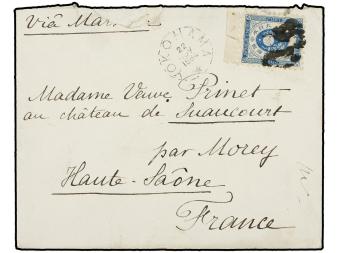 Viâ Mar
YOKOHAMA
Madame Veuve Prinet
au château de Suaucourt
par Morey
Haute-Saône
France